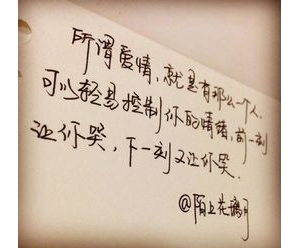 所谓爱情，就是有那么一个人，
可以轻易控制你的情绪，前一刻
让你哭，下一刻又让你笑．
@陌上花漓月